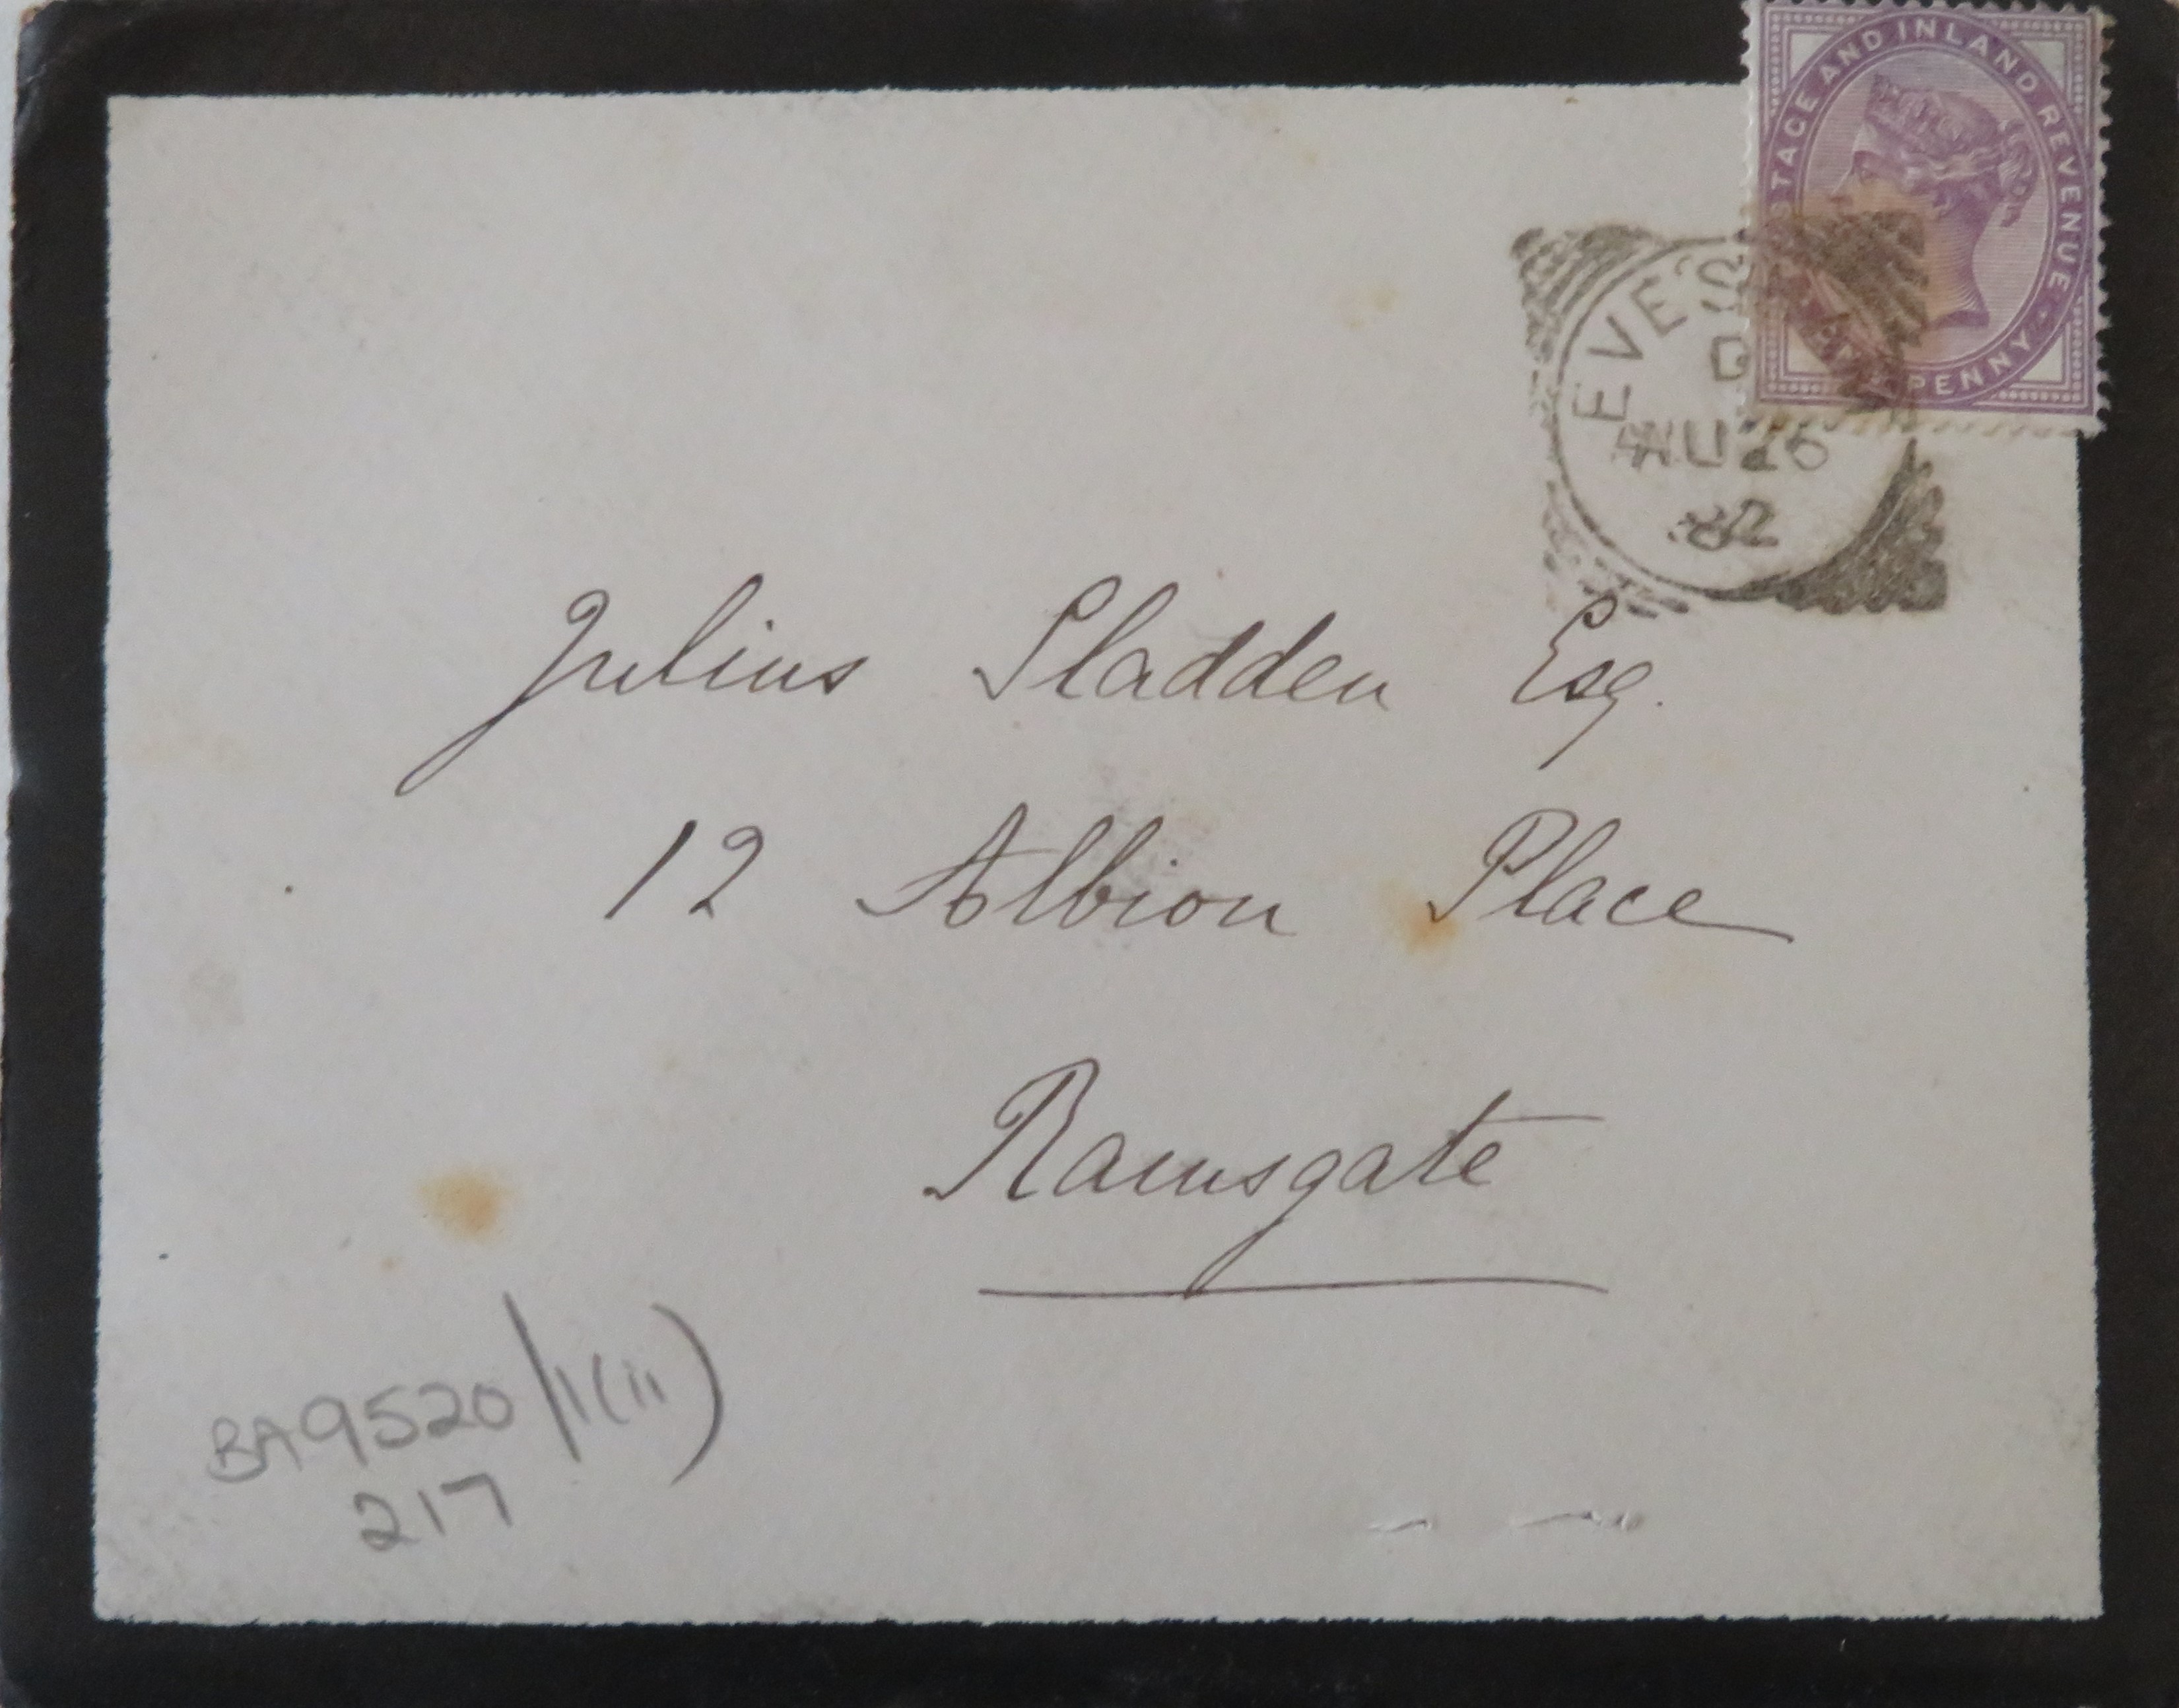 POSTAGE AND INLAND REVENUE
PENNY
EVES
AU 26
82
Julius Sladden Esq.
12 Albion Place
Ramsgate
BA9520/1(ii)
217